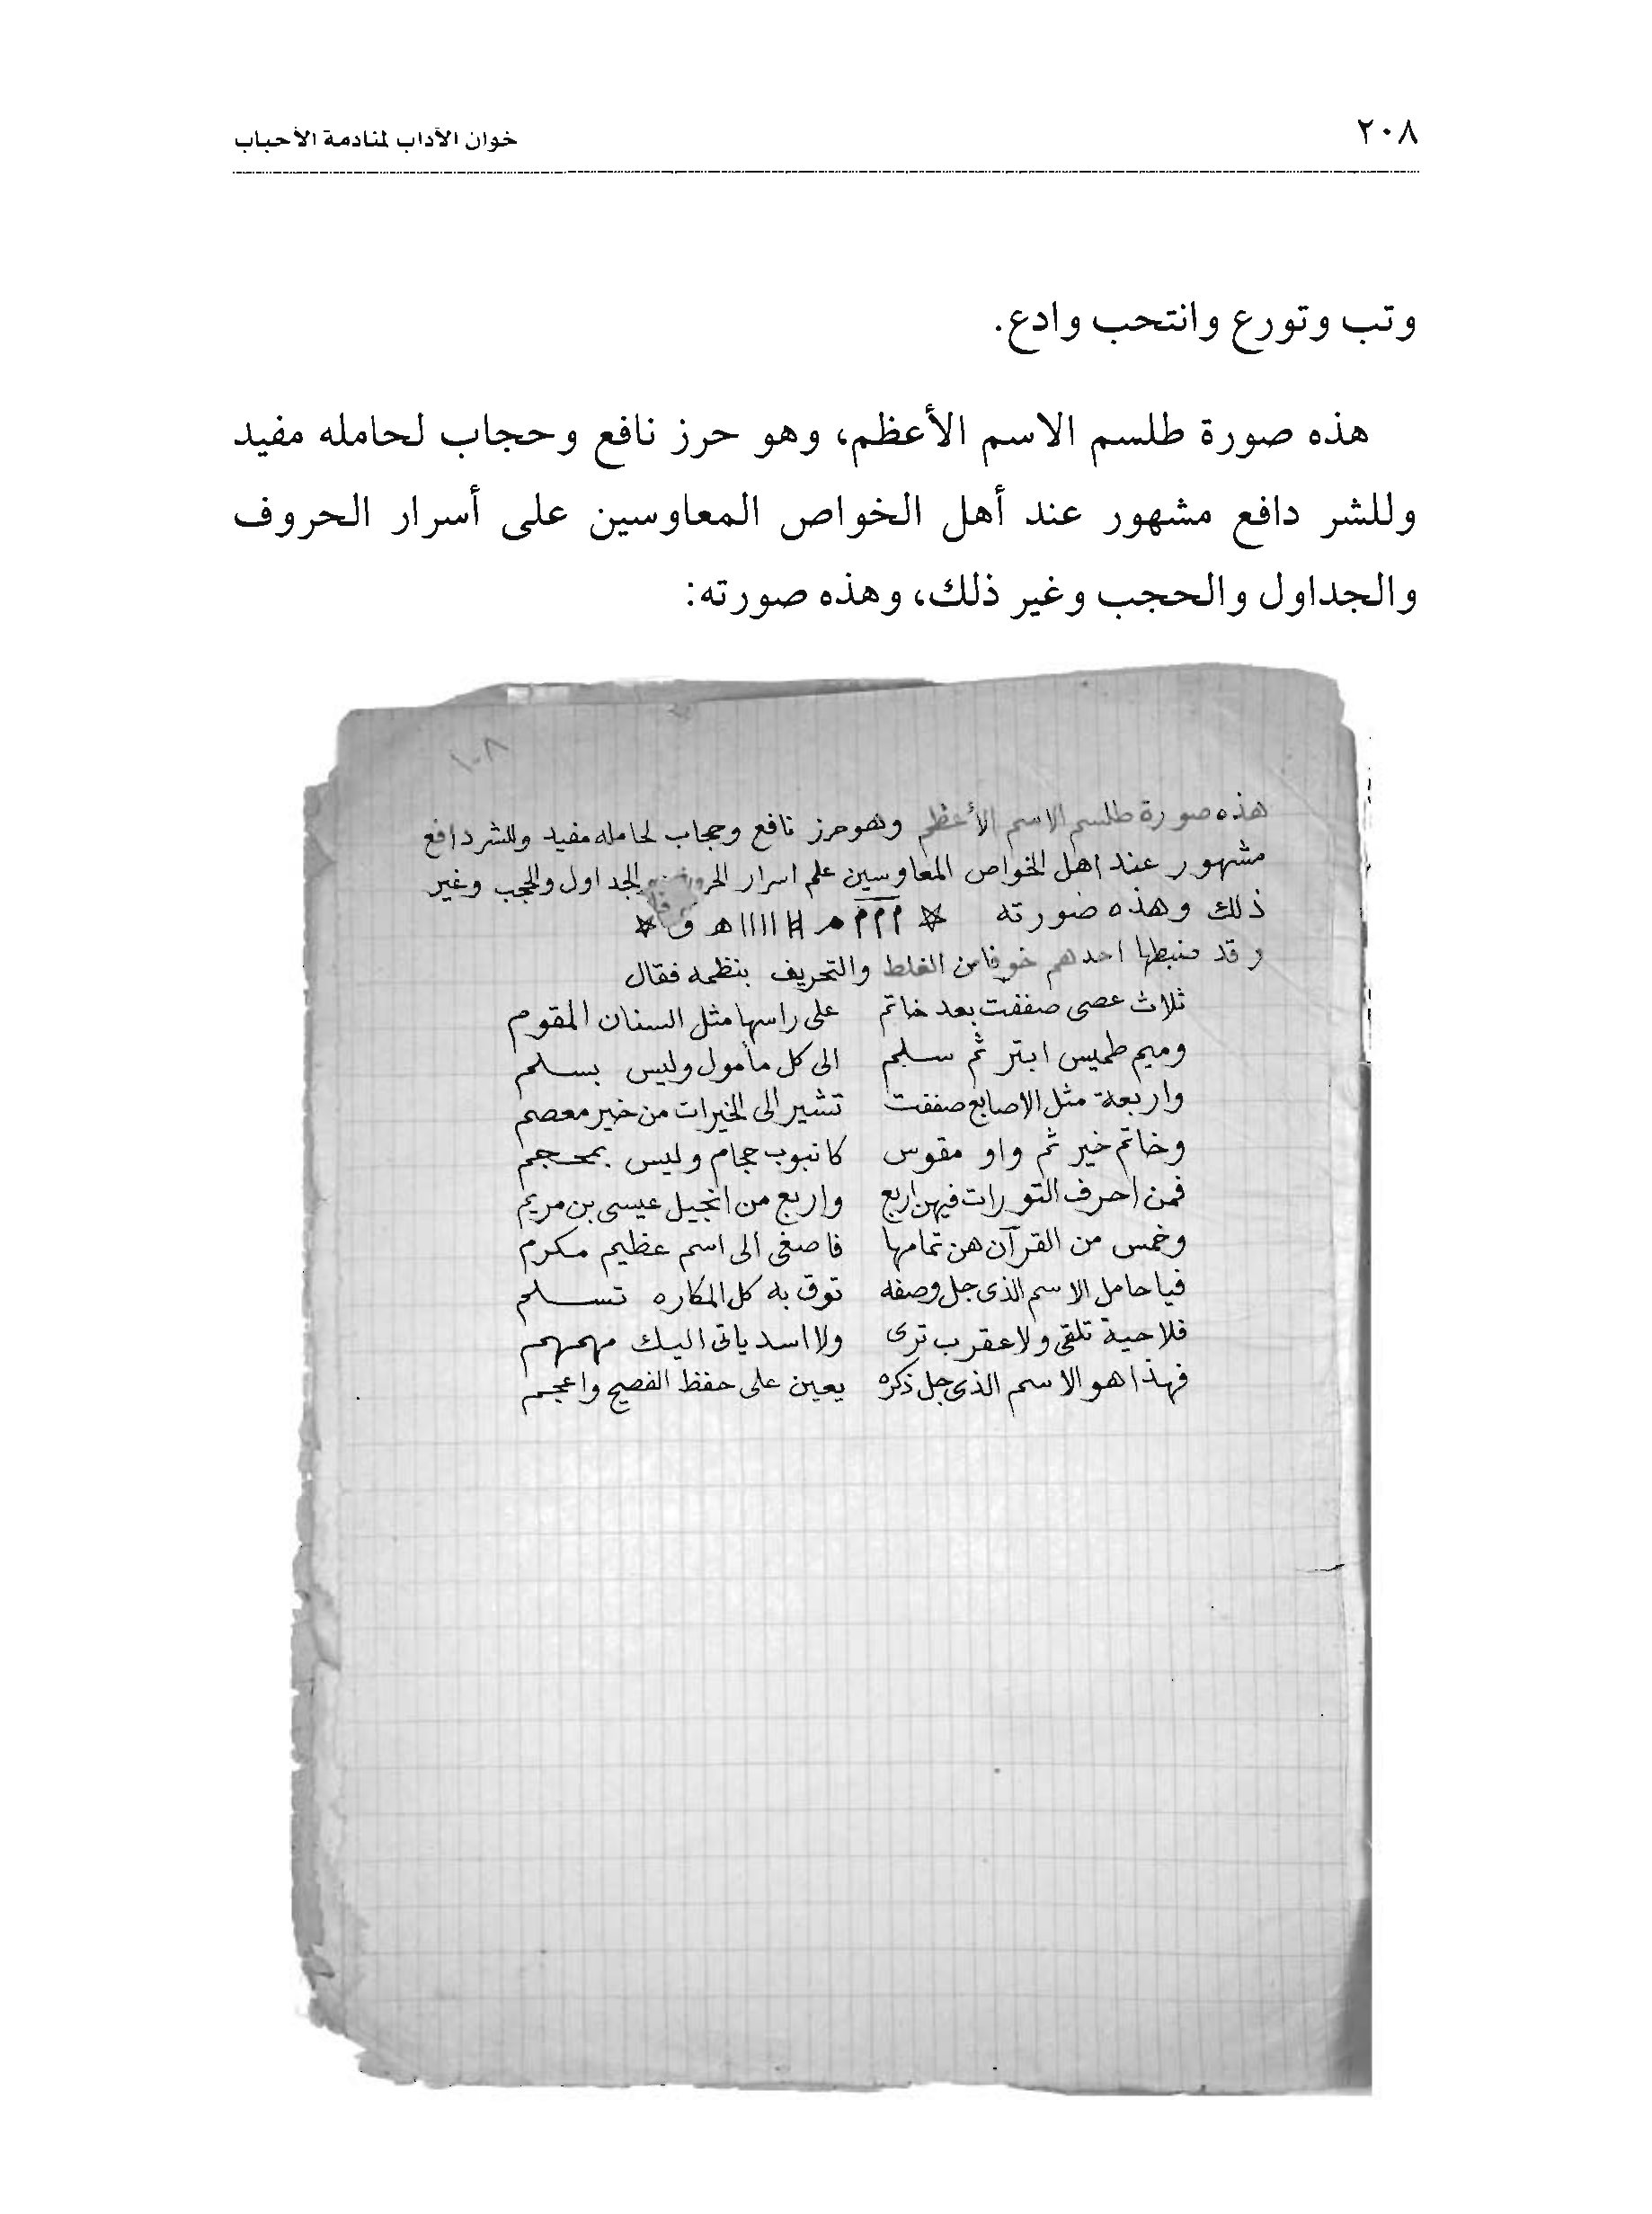 ٢٠٨
خوان الآداب لمنادمة الأحباب
وتب وتورع وانتحب وادع.
هذه صورة طلسم الاسم الأعظم، وهو حرز نافع وحجاب لحامله مفيد
وللشر دافع مشهور عند أهل الخواص المعاوسين على أسرار الحروف
والجداول والحجب وغير ذلك، وهذه صورته:
١٠٨
هذه صورة طلسم الاسم الأعظم وهو حرز نافع وحجاب لحامله مفيد وللشر دافع
مشهور عند اهل الخواص المعاوسين علم اسرار والجداول والحجب وغير
ذلك وهذه صورته
وقد ضبطها احدهم خوفا من الغلط والتحريف بنظمه فقال
ثلاث عصى صففت بعد خاتم على راسها مثل السنان المقوم
وميم طميس ابتر ثم سلم الى كل مأمول وليس بسلم
واربعة مثل الاصابع صففت تشير الى الخيرات من خير معصم
وخاتم خير ثم واو مقوس كانبوب حجام وليس بمحجم
فمن احرف التورات فيهن اربع واربع من انجيل عيسى بن مريم
وخمس من القرآن هن تمامها فاصغى الى اسم عظيم مكرم
فيا حامل الاسم الذى جل وصفه توق به كل المكاره تسلم
فلا حية تلقى ولا عقرب ترى ولا اسد ياتى اليك مهمهم
فهذا هو الاسم الذى جل ذكره يعين على حفظ الفصيح واعجم